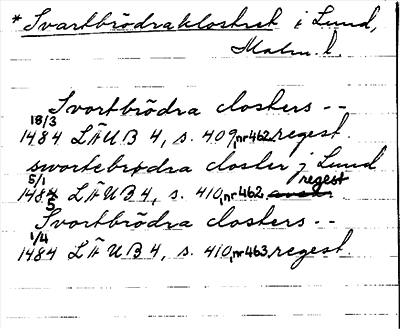 * Svartbrödraklostret i Lund,
Malm. l.
Svortbrödra closters --
18/3
1484 LÄUB 4, s. 409, nr 462 regest
swortebrødra closter j Lund
5/1 regest
1485 LÄUB 4, s. 410, nr 462
Svortbrödra closters --
1/4
1484 LÄUB 4, s. 410, nr 463 regest